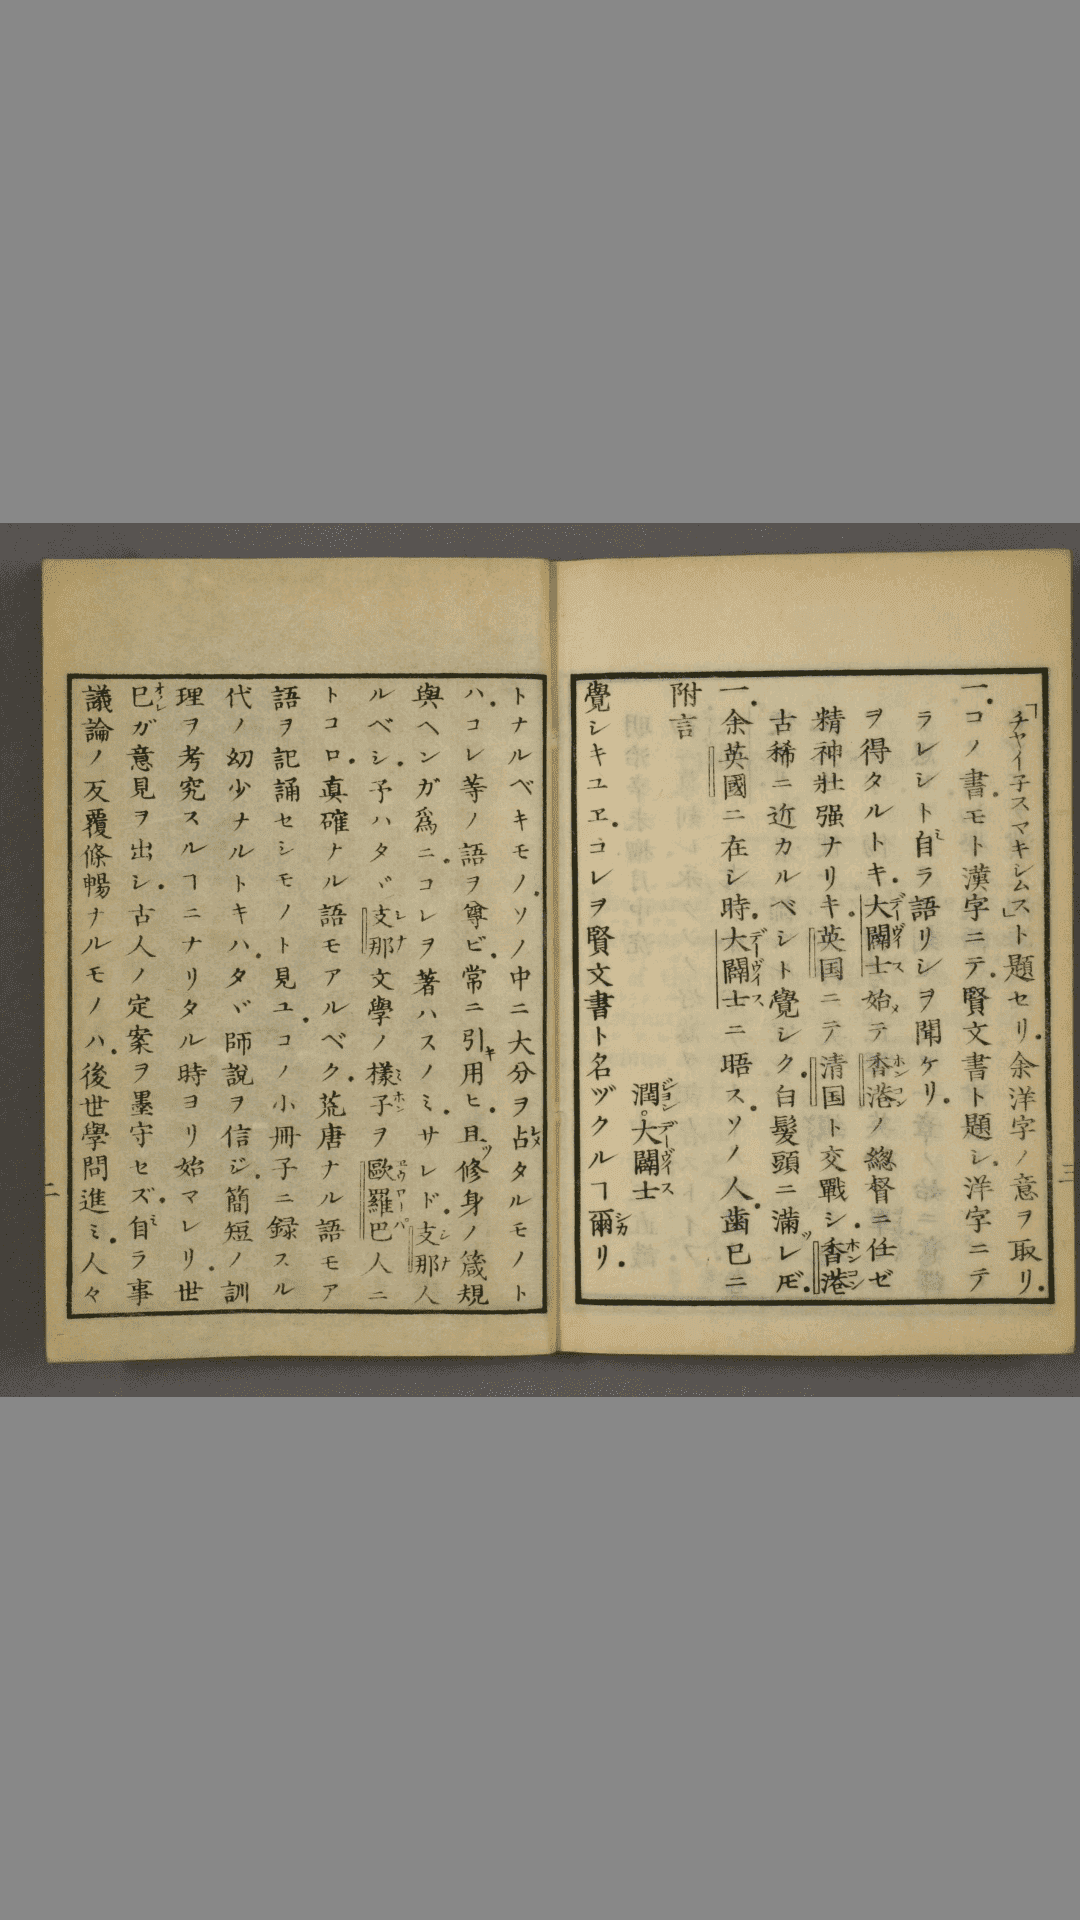 議論ノ反覆條暢ナルモノハ。後世學問進ミ。人々
己ガ意見ヲ出シ。古人ノ定案ヲ墨守セズ。自ラ事
理ヲ考究スルヿニナリタル時ヨリ始マレリ。世
代ノ幼少ナルトキハ。タヾ師説ヲ信ジ。簡短ノ訓
語ヲ記誦セシモノト見ユ。コノ小冊子ニ録スル
トコロ。真確ナル語モアルベク。荒唐ナル語モア
ルベシ。予ハタヾ支那文學ノ樣子ヲ歐羅巴人ニ
與ヘンガ爲ニ。コレヲ著ハスノミ。サレド。支那人
ハ。コレ等ノ語ヲ尊ビ。常ニ引用ヒ。且修身ノ箴規
トナルベキモノ。ソノ中ニ大分ヲ占タルモノト
覺シキユヱ。コレヲ賢文書ト名ヅクルヿ爾リ。
潤。大闢士
附言
一。余英國ニ在シ時。大闢士ニ晤ス。ソノ人。歯已ニ
古稀ニ近カルベシト覺シク。白髮頭ニ滿レ𪜈。
精神壯强ナリキ。英国ニテ清国ト交戰シ。香港
ヲ得タルトキ。大闢士始テ香港ノ總督ニ任ゼ
ラレシト自ラ語リシヲ聞ケリ。
一。コノ書。モト漢字ニテ。賢文書ト題シ。洋字ニテ
「チヤイ子スマキシムス」ト題セリ。余洋字ノ意ヲ取リ。
二
三